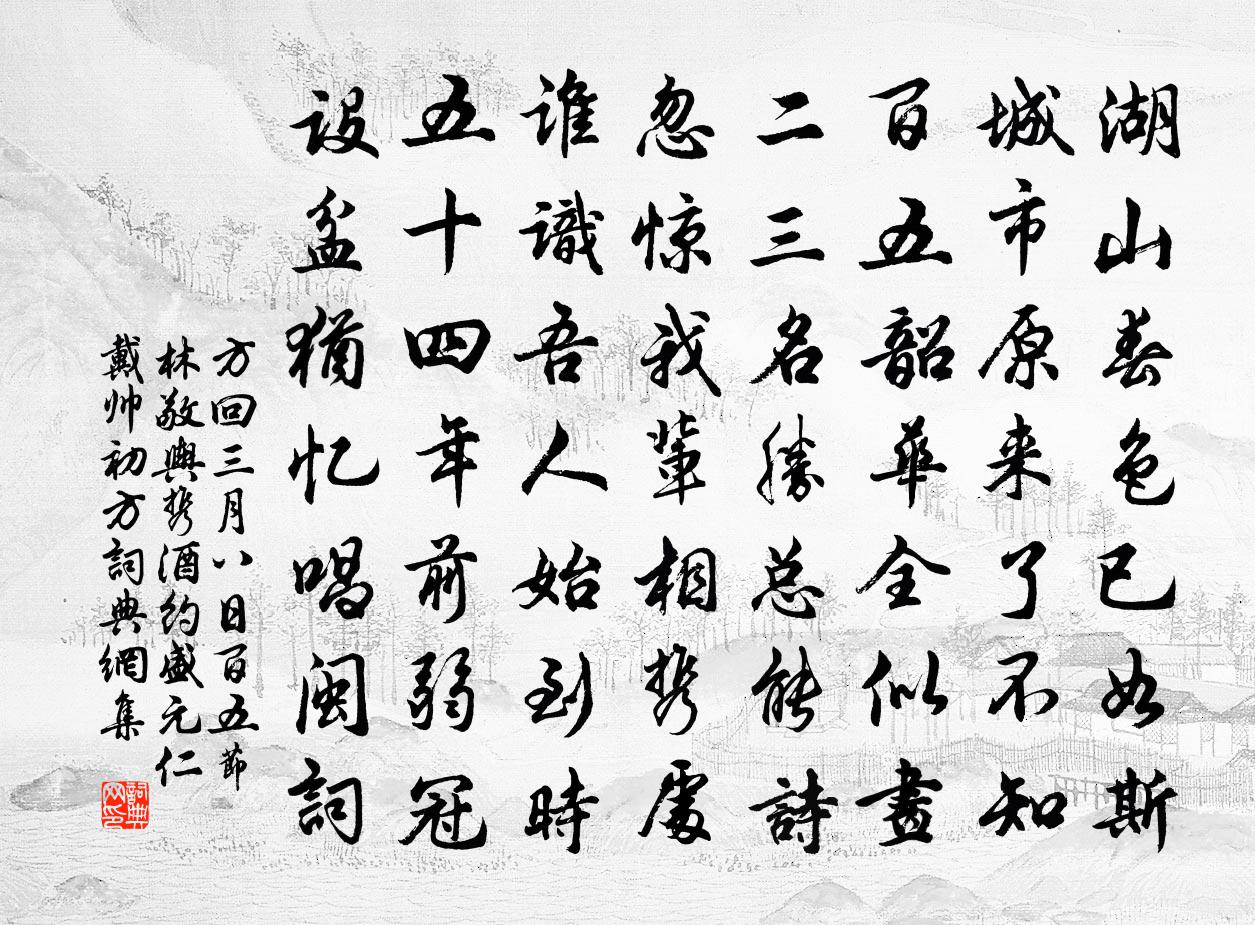 湖山春色已如斯
城市原来了不知
百五韶華全似畫
二三名勝总能詩
忽惊我輩相携處
谁識吾人始到時
五十四年前弱冠
设盆猶忆唱闽詞
方回三月八日百五節
林敬輿携酒約盛元仁
戴帅初方詞典網集
詞典网印